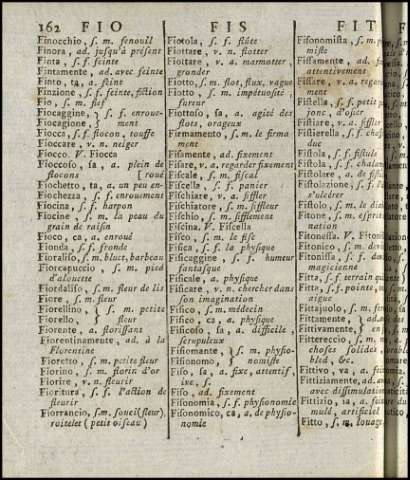 162 FIO FIS FIT
Finocchio, s. m. fenouil
Finora, ad. jusqu'à présent
Finta, s. f. feinte
Fintamente, ad. avec feinte
Finto, ta, a. feint
Finzione, s. f. feinte, fiction
Fio, s. m. fief
Fiocaggine, } s. f. enroue-
Fiocagione, } ment
Fiocca, s. f. flocon, touffe
Fioccare, v. n. neiger
Fiocco. V. Fiocca
Fioccoso, sa, a. plein de
flocons [roué
Fiochetto, ta, a. un peu en-
Fiochezza, s. f. enrouement
Fiocina, s. f. harpon
Fiocine, s. m. la peau du
grain de raisin
Fioco, ca, a. enroué
Fionda, s. f. fronde
Fioraliso, s. m. bluet, barbeau
Fiorcapuccio, s. m. pied
d'alouette
Fiordaliso, s. m. fleur de lis
Fiore, s. m. fleur
Fiorellino, } s. m. petite
Fiorello, } fleur
Fiorente, a. florissant
Fiorentinamente, ad. à la
Florentine
Fioretto, s. m. petite fleur
Fiorino, s. m. florin d'or
Fiorire, v. n. fleurir
Fioritura, s. f. l'action de
fleurir
Fiorrancio, s. m. souci (fleur),
roitelet (petit oiseau)
Fiotola, s. f. flûte
Fiottare, v. n. flotter
Fiottare, v. a. marmotter,
gronder
Fiotto, s. m. flot, flux, vague
Fiotto, s. m. impétuosité,
fureur
Fiottoso, sa, a. agité des
flots, orageux
Firmamento, s. m. le firma
ment
Fisamente, ad. fixement
Fisare, v. a. regarder fixement
Fiscale, s. m. fiscal
Fiscella, s. f. panier
Fischiare, v. a. siffler
Fischiatore, s. m. siffleur
Fischio, s. m. sifflement
Fiscina. V. Fiscella
Fisco, s. m. le fisc
Fisica, s. f. la physique
Fisicaggine, s. f. humeur
fantasque
Fisicale, a. physique
Fisicare, v. n. chercher dans
son imagination
Fisico, s. m. médecin
Fisico, ca, a. physique
Fisicoso, sa, a. difficile,
scrupuleux
Fisionomante, } s. m. physio-
Fisionomo, } nomiste
Fiso, sa, a. fixe, attentif,
ive, s.
Fiso, ad. fixement
Fisonomia, s. f. physionomie
Fisonomico, ca, a. de physio-
nomie
Fisonomista, s. m. p
miste
Fissamente, ad.
attentivement
Fissare, v. a. regar
ment
Fistella, s. f. petit p
jonc, d'osier
Fistiare, v. a. siffler
Fistierella, s. f.
duc
Fistola, s. f. fistule
Fistola, s. f.
Fistolare, a. de
Fistolazione, s. f.
s'ulcérer
Fistolo, s. m. le dia
Fitone, s. m. esprit
nation
Fitonessa. V. Fiton
Fitonico, s. m.
Fitonissa, s. f.
magicienne
Fitta, s. f. terrain
Fitta, s. f. pointe,
aigue
Fittajuolo, s. m.
Fittamente, ad.
Fittivamente,
Fittereccio, s. m.
choses solides,
bled, &c.
Fittivo, va, a.
Fittiziamente, ad.
avec dissimulation
Fittizio, ia, a.
mulé, artificiel
Fitto, s. m. louage